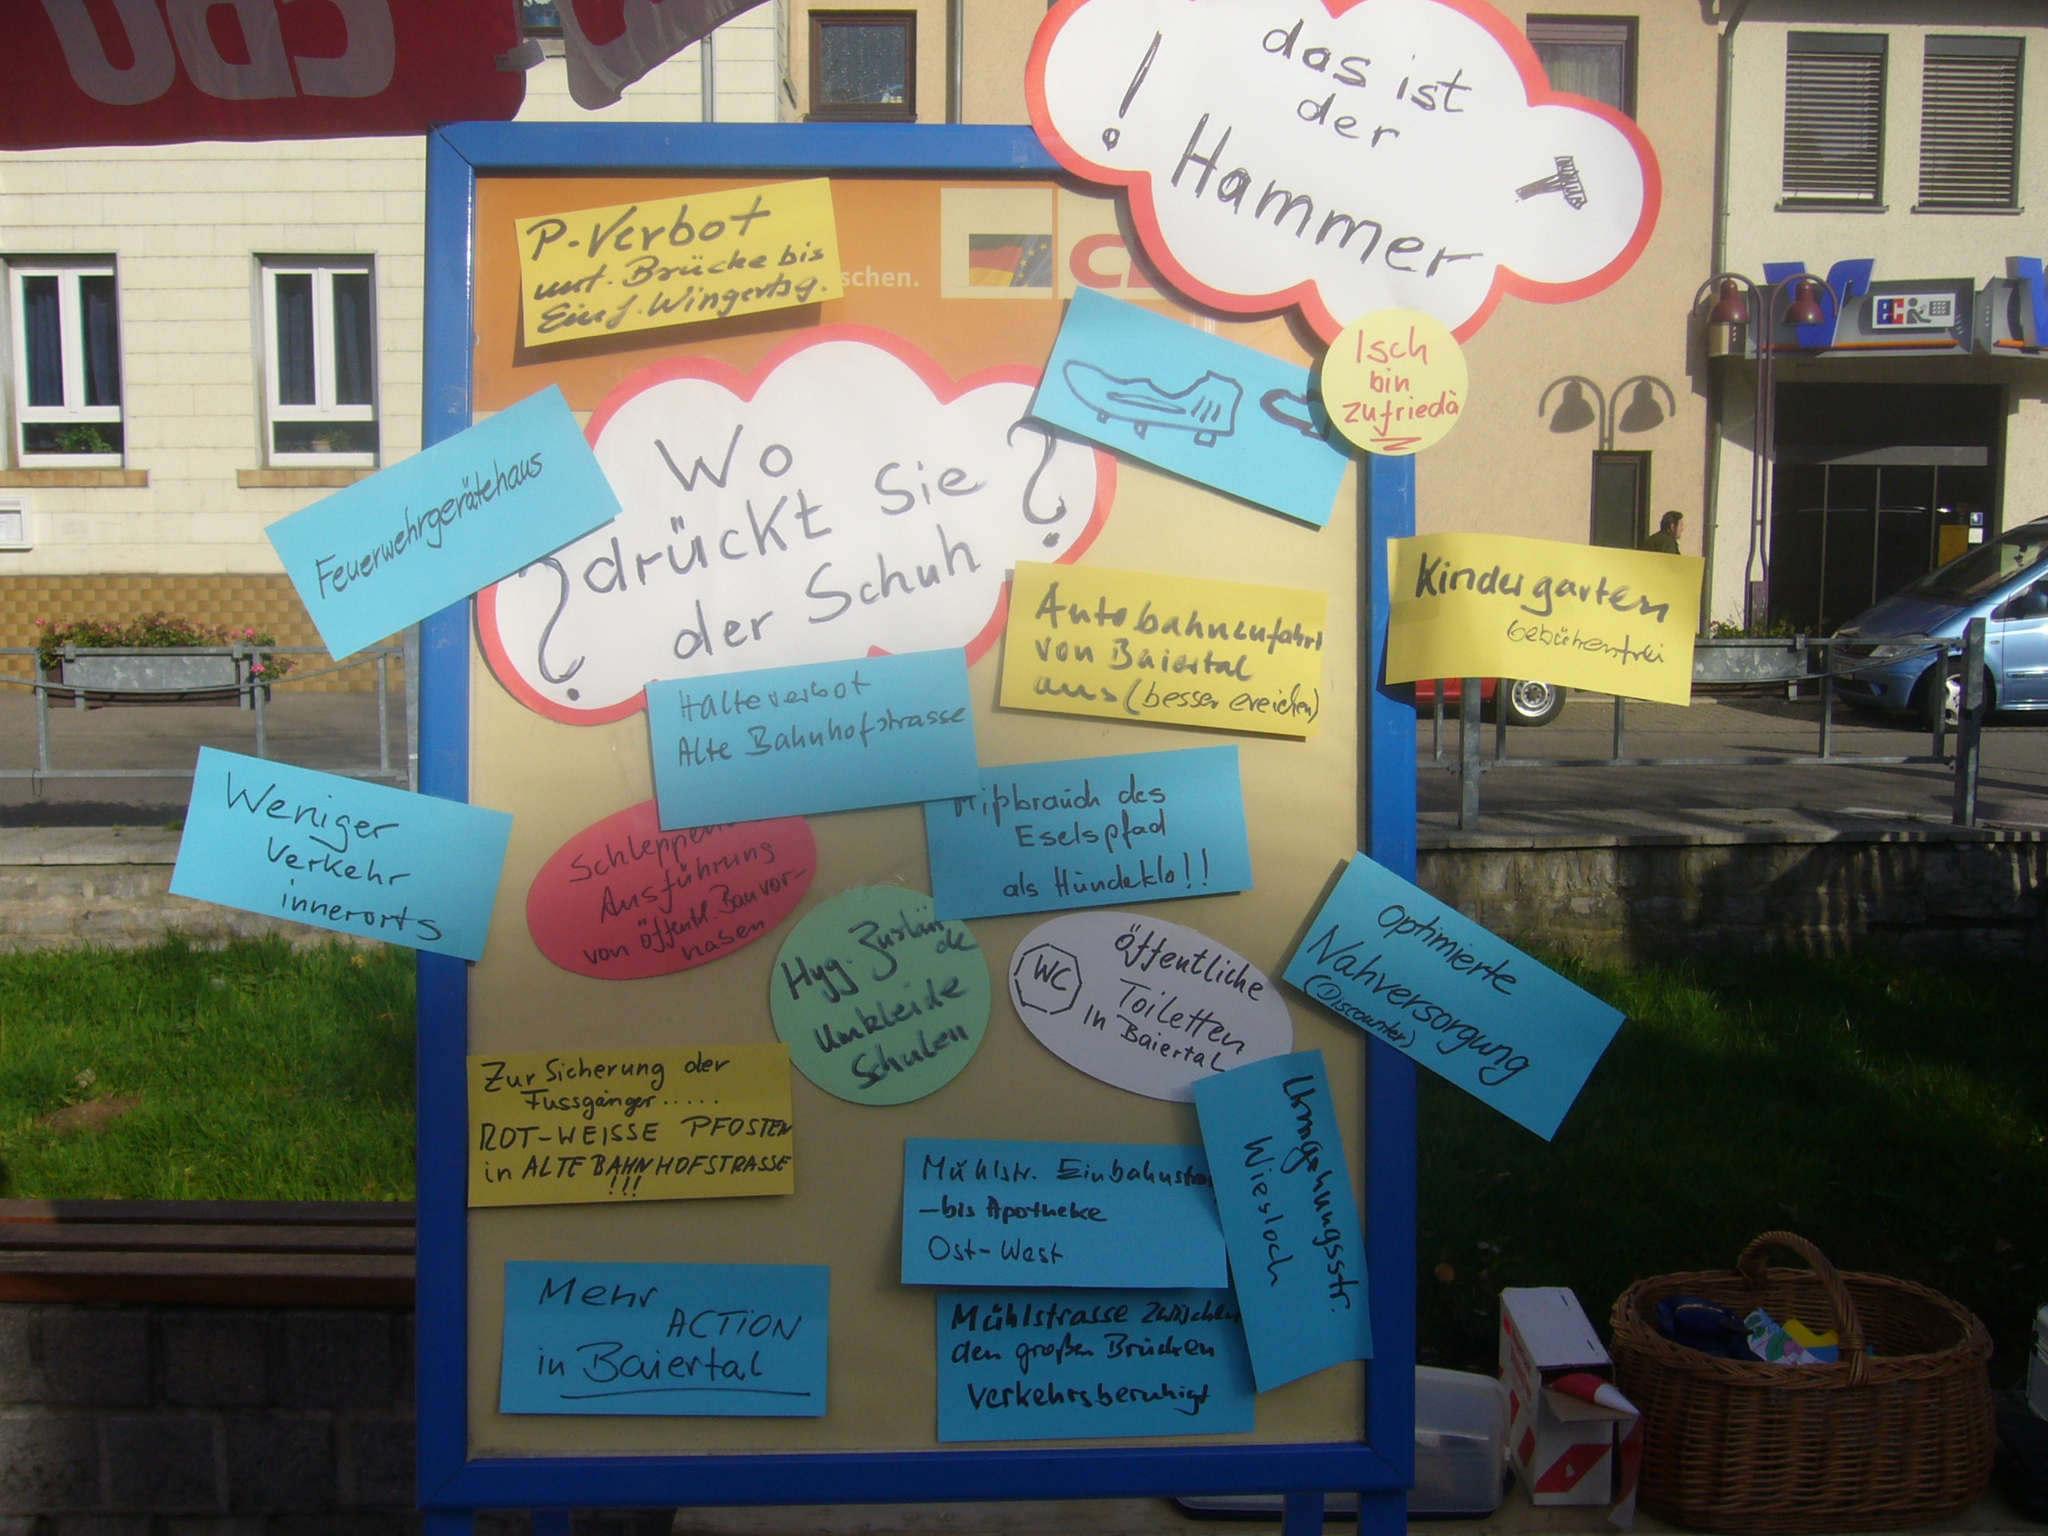 CDU
das ist
der
! Hammer
P-Verbot
unt. Brücke bis
Einf. Wingertsg.
schen.
Isch
bin
zufriedä
Wo
drückt Sie
der Schuh
? ?
Feuerwehrgerätehaus
Autobahnzufahrt
von Baiertal
aus (besser ereichen)
Kindergarten
Gebührenfrei
Halteverbot
Alte Bahnhofstrasse
Weniger
Verkehr
innerorts
Mißbrauch des
Eselspfad
als Hundeklo!!
Ausführung
von öffentl. Bauvor-
haben
Hyg. Zustän
de
Umkleide
Schulen
WC
öffentliche
Toiletten
in Baiertal
Optimierte
Nahversorgung
(Discounter)
Zur Sicherung der
Fussgänger.....
ROT-WEISSE PFOSTEN
in ALTE BAHNHOFSTRASSE
!!!
Mühlstr. Einbahnstr
- bis Apotheke
Ost-West
Umgehungsstr.
Wiesloch
Mehr
ACTION
in Baiertal
Mühlstrasse zwischen
den großen Brücken
Verkehrsberuhigt